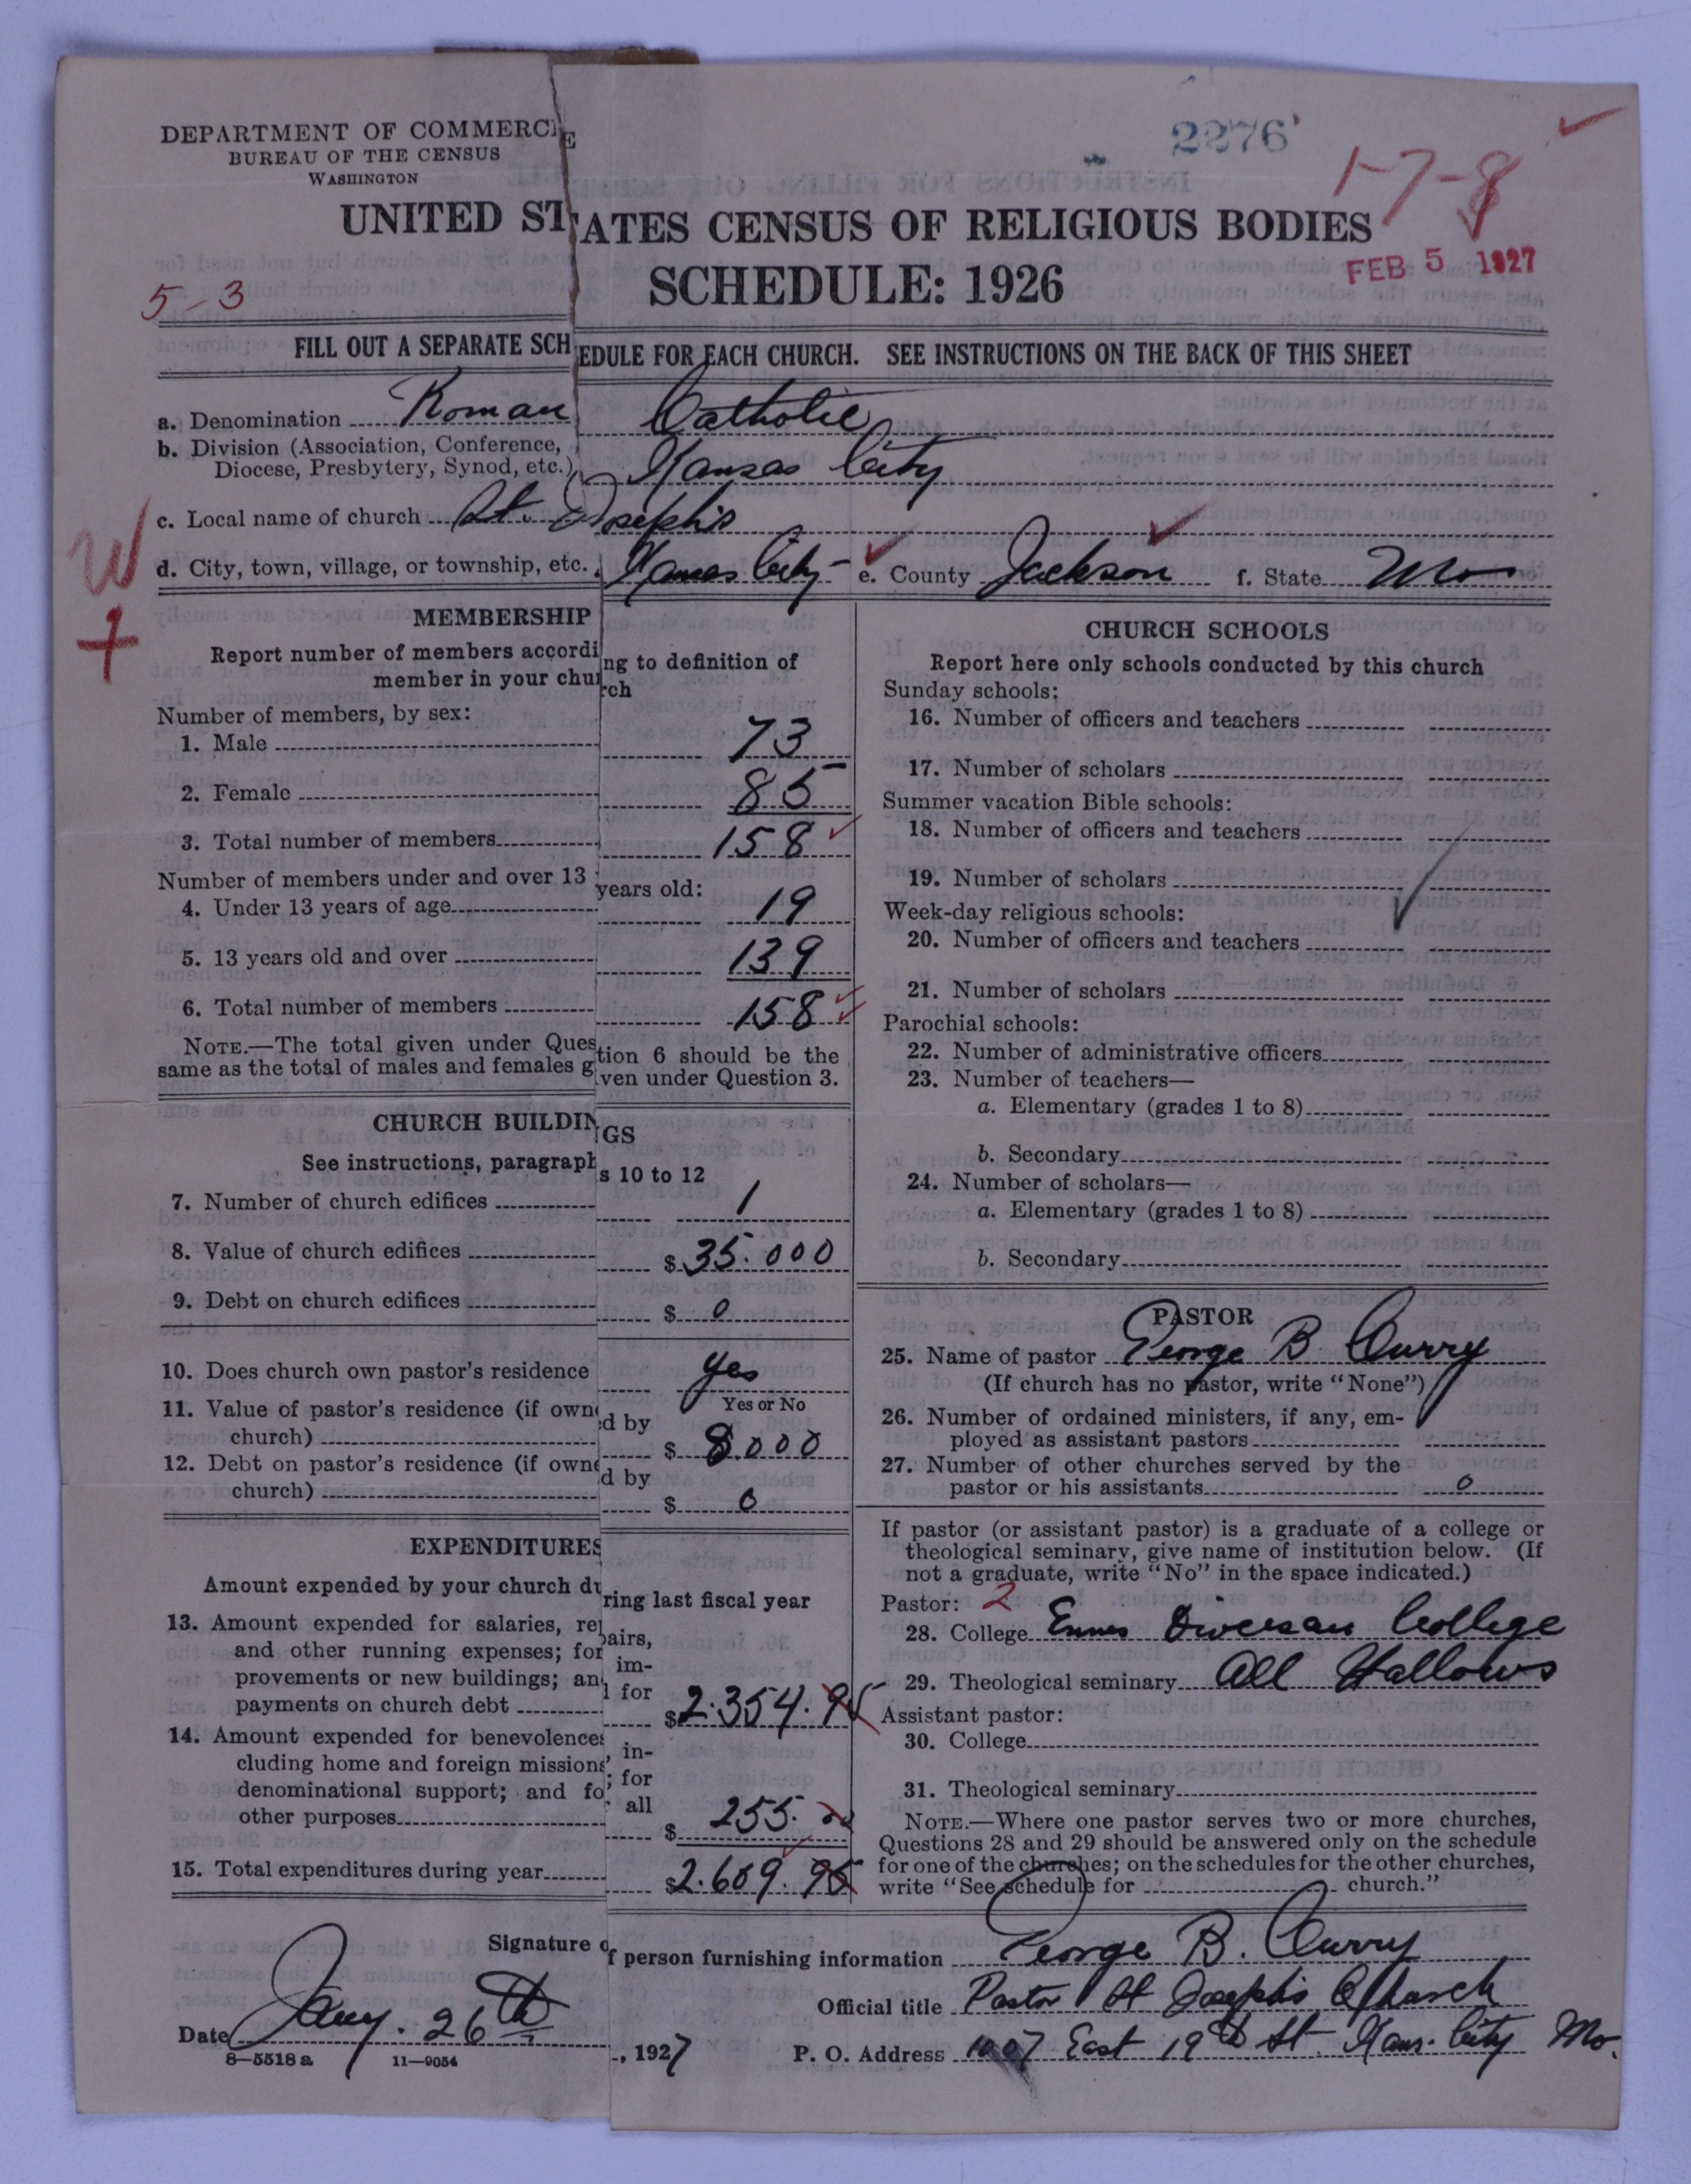 DEPARTMENT OF COMMERCE
BUREAU OF THE CENSUS
WASHINGTON
2276
1-7-8
UNITED STATES CENSUS OF RELIGIOUS BODIES
SCHEDULE: 1926
FEB 5 1927
5-3
FILL OUT A SEPARATE SCHEDULE FOR EACH CHURCH. SEE INSTRUCTIONS ON THE BACK OF THIS SHEET
a. Denomination Roman Catholic
b. Division (Association, Conference,
Diocese, Presbytery, Synod, etc.) Kansas City
c. Local name of church St. Joseph's
W
d. City, town, village, or township, etc. Kansas City e. County Jackson f. State Mo
+
MEMBERSHIP
Report number of members according to definition of
member in your church
Number of members, by sex:
1. Male 73
2. Female 85
3. Total number of members 158
Number of members under and over 13 years old:
4. Under 13 years of age 19
5. 13 years old and over 139
6. Total number of members 158
NOTE.—The total given under Question 6 should be the
same as the total of males and females given under Question 3.
CHURCH BUILDINGS
See instructions, paragraphs 10 to 12
7. Number of church edifices 1
8. Value of church edifices $35.000
9. Debt on church edifices $0
10. Does church own pastor's residence yes
Yes or No
11. Value of pastor's residence (if owned by
church) $8.000
12. Debt on pastor's residence (if owned by
church) $0
EXPENDITURES
Amount expended by your church during last fiscal year
13. Amount expended for salaries, repairs,
and other running expenses; for im-
provements or new buildings; and for
payments on church debt $2.354.95
14. Amount expended for benevolences, in-
cluding home and foreign missions; for
denominational support; and for all
other purposes $255.
15. Total expenditures during year $2.609.95
CHURCH SCHOOLS
Report here only schools conducted by this church
Sunday schools:
16. Number of officers and teachers
17. Number of scholars
Summer vacation Bible schools:
18. Number of officers and teachers
19. Number of scholars
Week-day religious schools:
20. Number of officers and teachers
21. Number of scholars
Parochial schools:
22. Number of administrative officers
23. Number of teachers—
a. Elementary (grades 1 to 8)
b. Secondary
24. Number of scholars—
a. Elementary (grades 1 to 8)
b. Secondary
PASTOR
25. Name of pastor George B Curry
(If church has no pastor, write "None")
26. Number of ordained ministers, if any, em-
ployed as assistant pastors
27. Number of other churches served by the
pastor or his assistants 0
If pastor (or assistant pastor) is a graduate of a college or
theological seminary, give name of institution below. (If
not a graduate, write "No" in the space indicated.)
Pastor: 2
28. College Ennis Diocesan College
29. Theological seminary All Hallows
Assistant pastor:
30. College
31. Theological seminary
NOTE.—Where one pastor serves two or more churches,
Questions 28 and 29 should be answered only on the schedule
for one of the churches; on the schedules for the other churches,
write "See schedule for church."
Signature of person furnishing information George B. Curry
Official title Pastor St Josephs Church
Date Jany. 26th, 1927
P. O. Address 1007 East 19th St. Kans. City Mo.
8—5518 a 11—9054